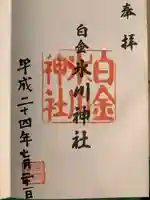 奉拝
白金氷川神社
白金
氷川
神社
平成二十四年七月二十一日